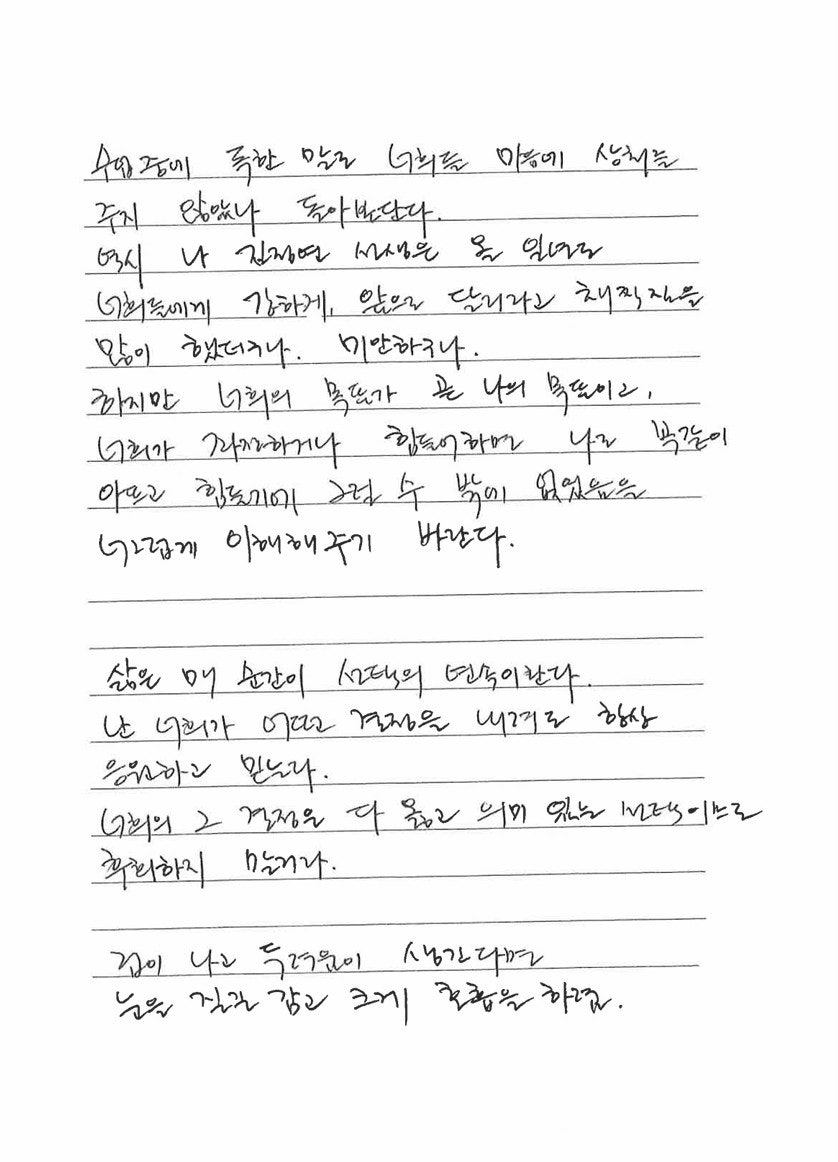 수업중에 독한 말로 너희들 마음에 상처를
주지 않았나 돌아본단다.
역시 나 김정연 선생은 올 일년도
너희들에게 강하게, 앞으로 달리라고 채찍질을
많이 했더구나. 미안하구나.
하지만 너희의 목표가 곧 나의 목표이고,
너희가 좌절하거나 힘들어하면 나도 똑같이
아프고 힘들기에 그럴 수 밖에 없었음을
너그럽게 이해해주기 바란다.
삶은 매 순간이 선택의 연속이란다.
난 너희가 어떤 결정을 내려도 항상
응원하고 믿는다.
너희의 그 결정은 다 옳고 의미 있는 선택이므로
후회하지 말거라.
겁이 나고 두려움이 생긴다면
눈을 질끈 감고 크게 호흡을 하렴.